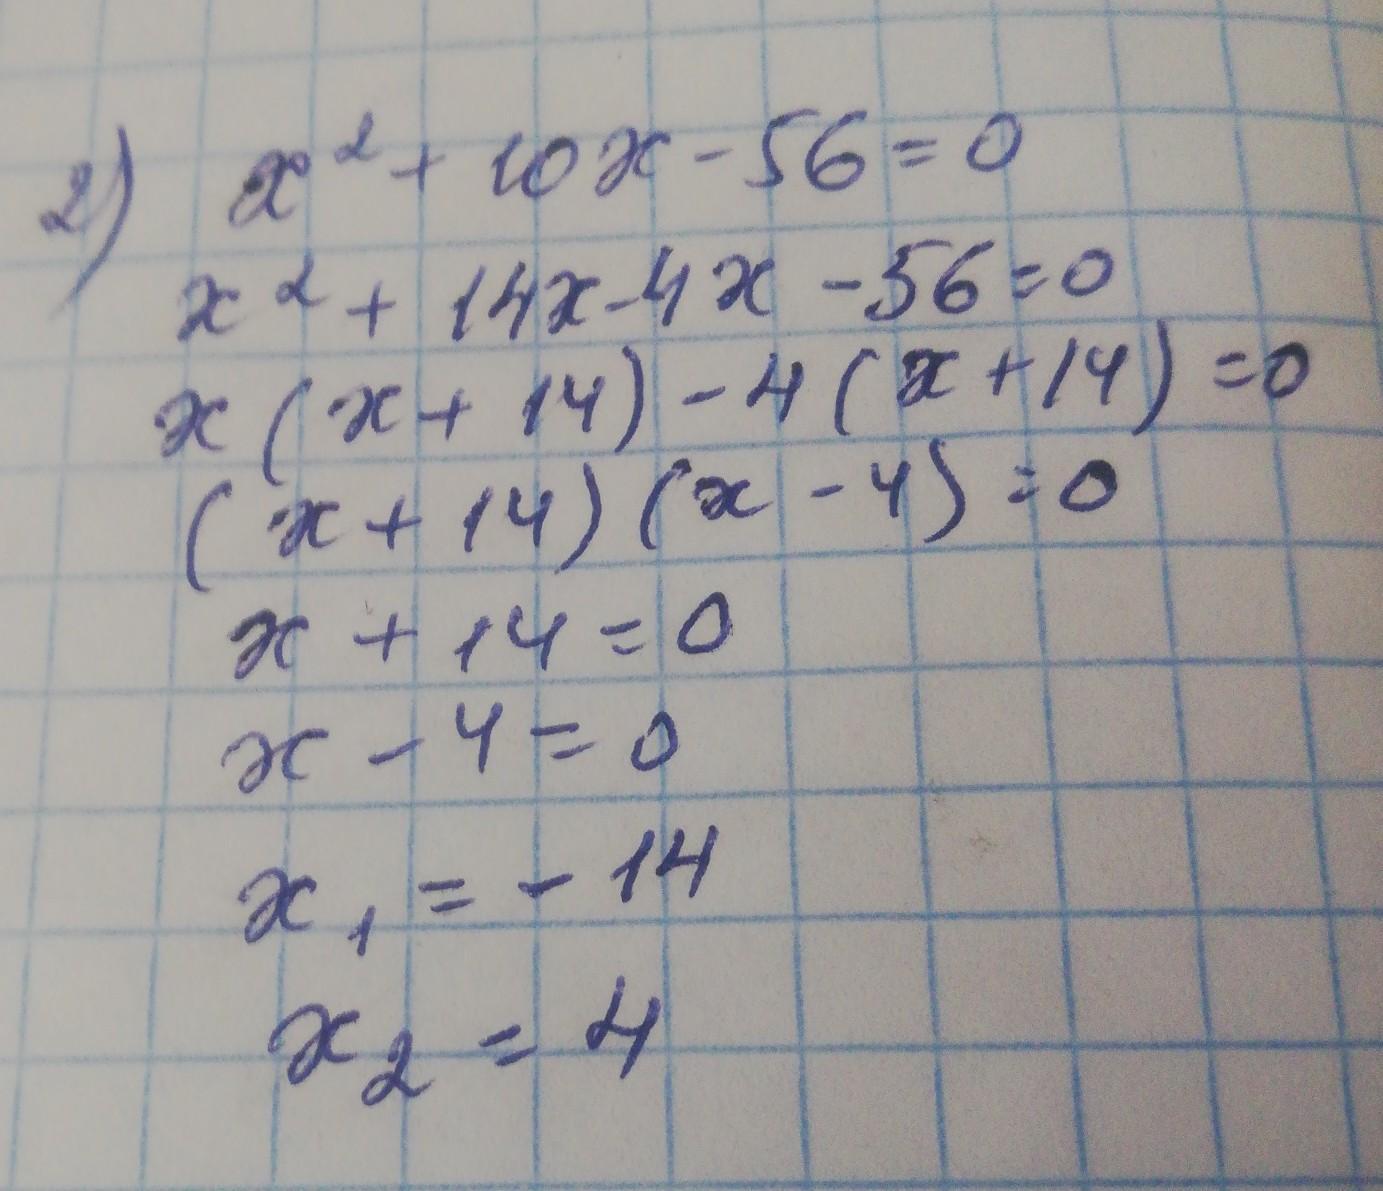 2) x² + 10x - 56 = 0
x² + 14x - 4x - 56 = 0
x(x + 14) - 4(x + 14) = 0
(x + 14)(x - 4) = 0
x + 14 = 0
x - 4 = 0
x₁ = - 14
x₂ = 4